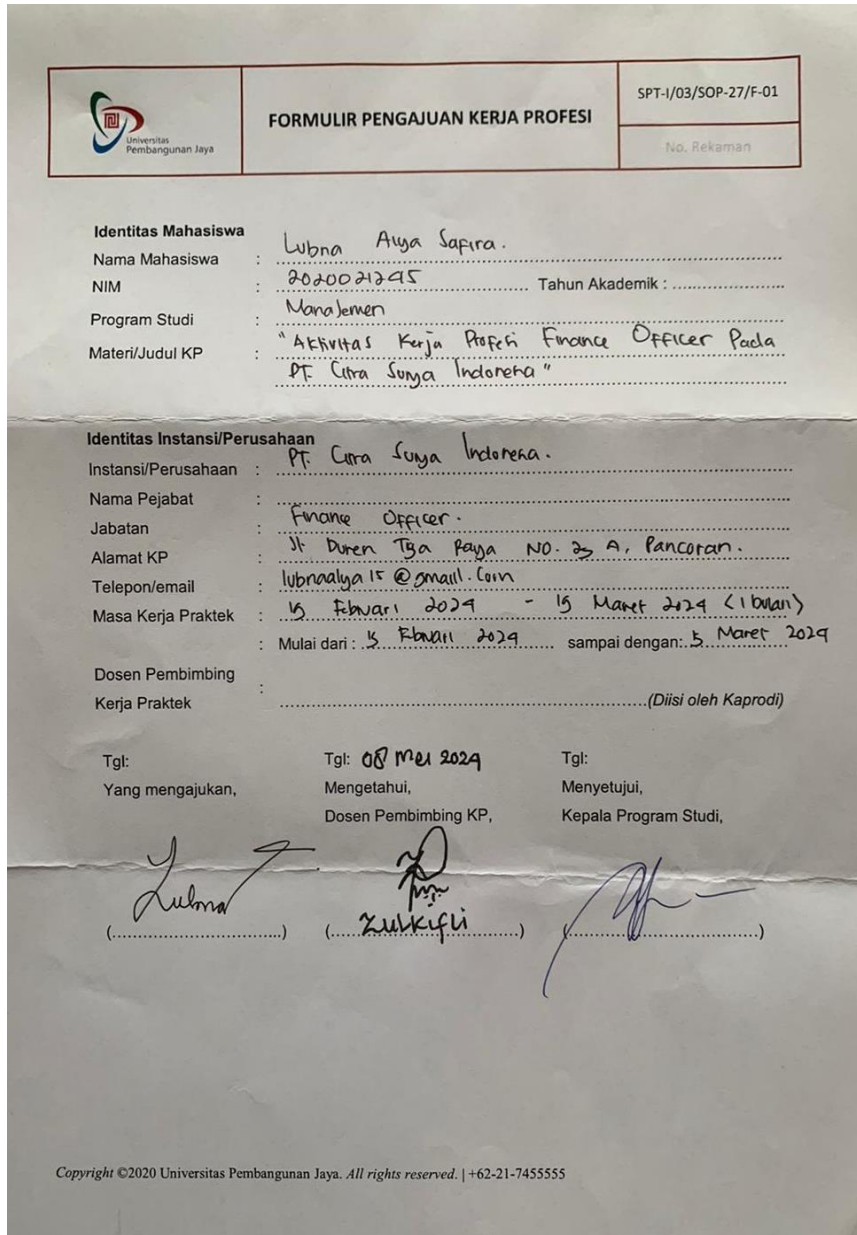 Universitas
Pembangunan Jaya
FORMULIR PENGAJUAN KERJA PROFESI
SPT-I/03/SOP-27/F-01
No. Rekaman
Identitas Mahasiswa
Nama Mahasiswa : Lubna Alya Safira.
NIM : 2020021295 Tahun Akademik :
Program Studi : Manajemen
Materi/Judul KP : "Aktivitas Kerja Profesi Finance Officer Pada
PT. Citra Surya Indonesia"
Identitas Instansi/Perusahaan
Instansi/Perusahaan : PT. Citra Surya Indonesia.
Nama Pejabat :
Jabatan : Finance Officer.
Alamat KP : Jl Duren Tiga Raya NO. A, Pancoran.
Telepon/email : lubnaalya15@gmail.com
Masa Kerja Praktek : 15 Februari 2024 - 15 Maret 2024 (1 bulan)
: Mulai dari : 15 Februari 2024 sampai dengan: 15 Maret 2024
Dosen Pembimbing
Kerja Praktek : (Diisi oleh Kaprodi)
Tgl: Tgl: 08 Mei 2024 Tgl:
Yang mengajukan, Mengetahui, Menyetujui,
Dosen Pembimbing KP, Kepala Program Studi,
Lubna
(....) (Zulkifli) (....)
Copyright ©2020 Universitas Pembangunan Jaya. All rights reserved. | +62-21-7455555